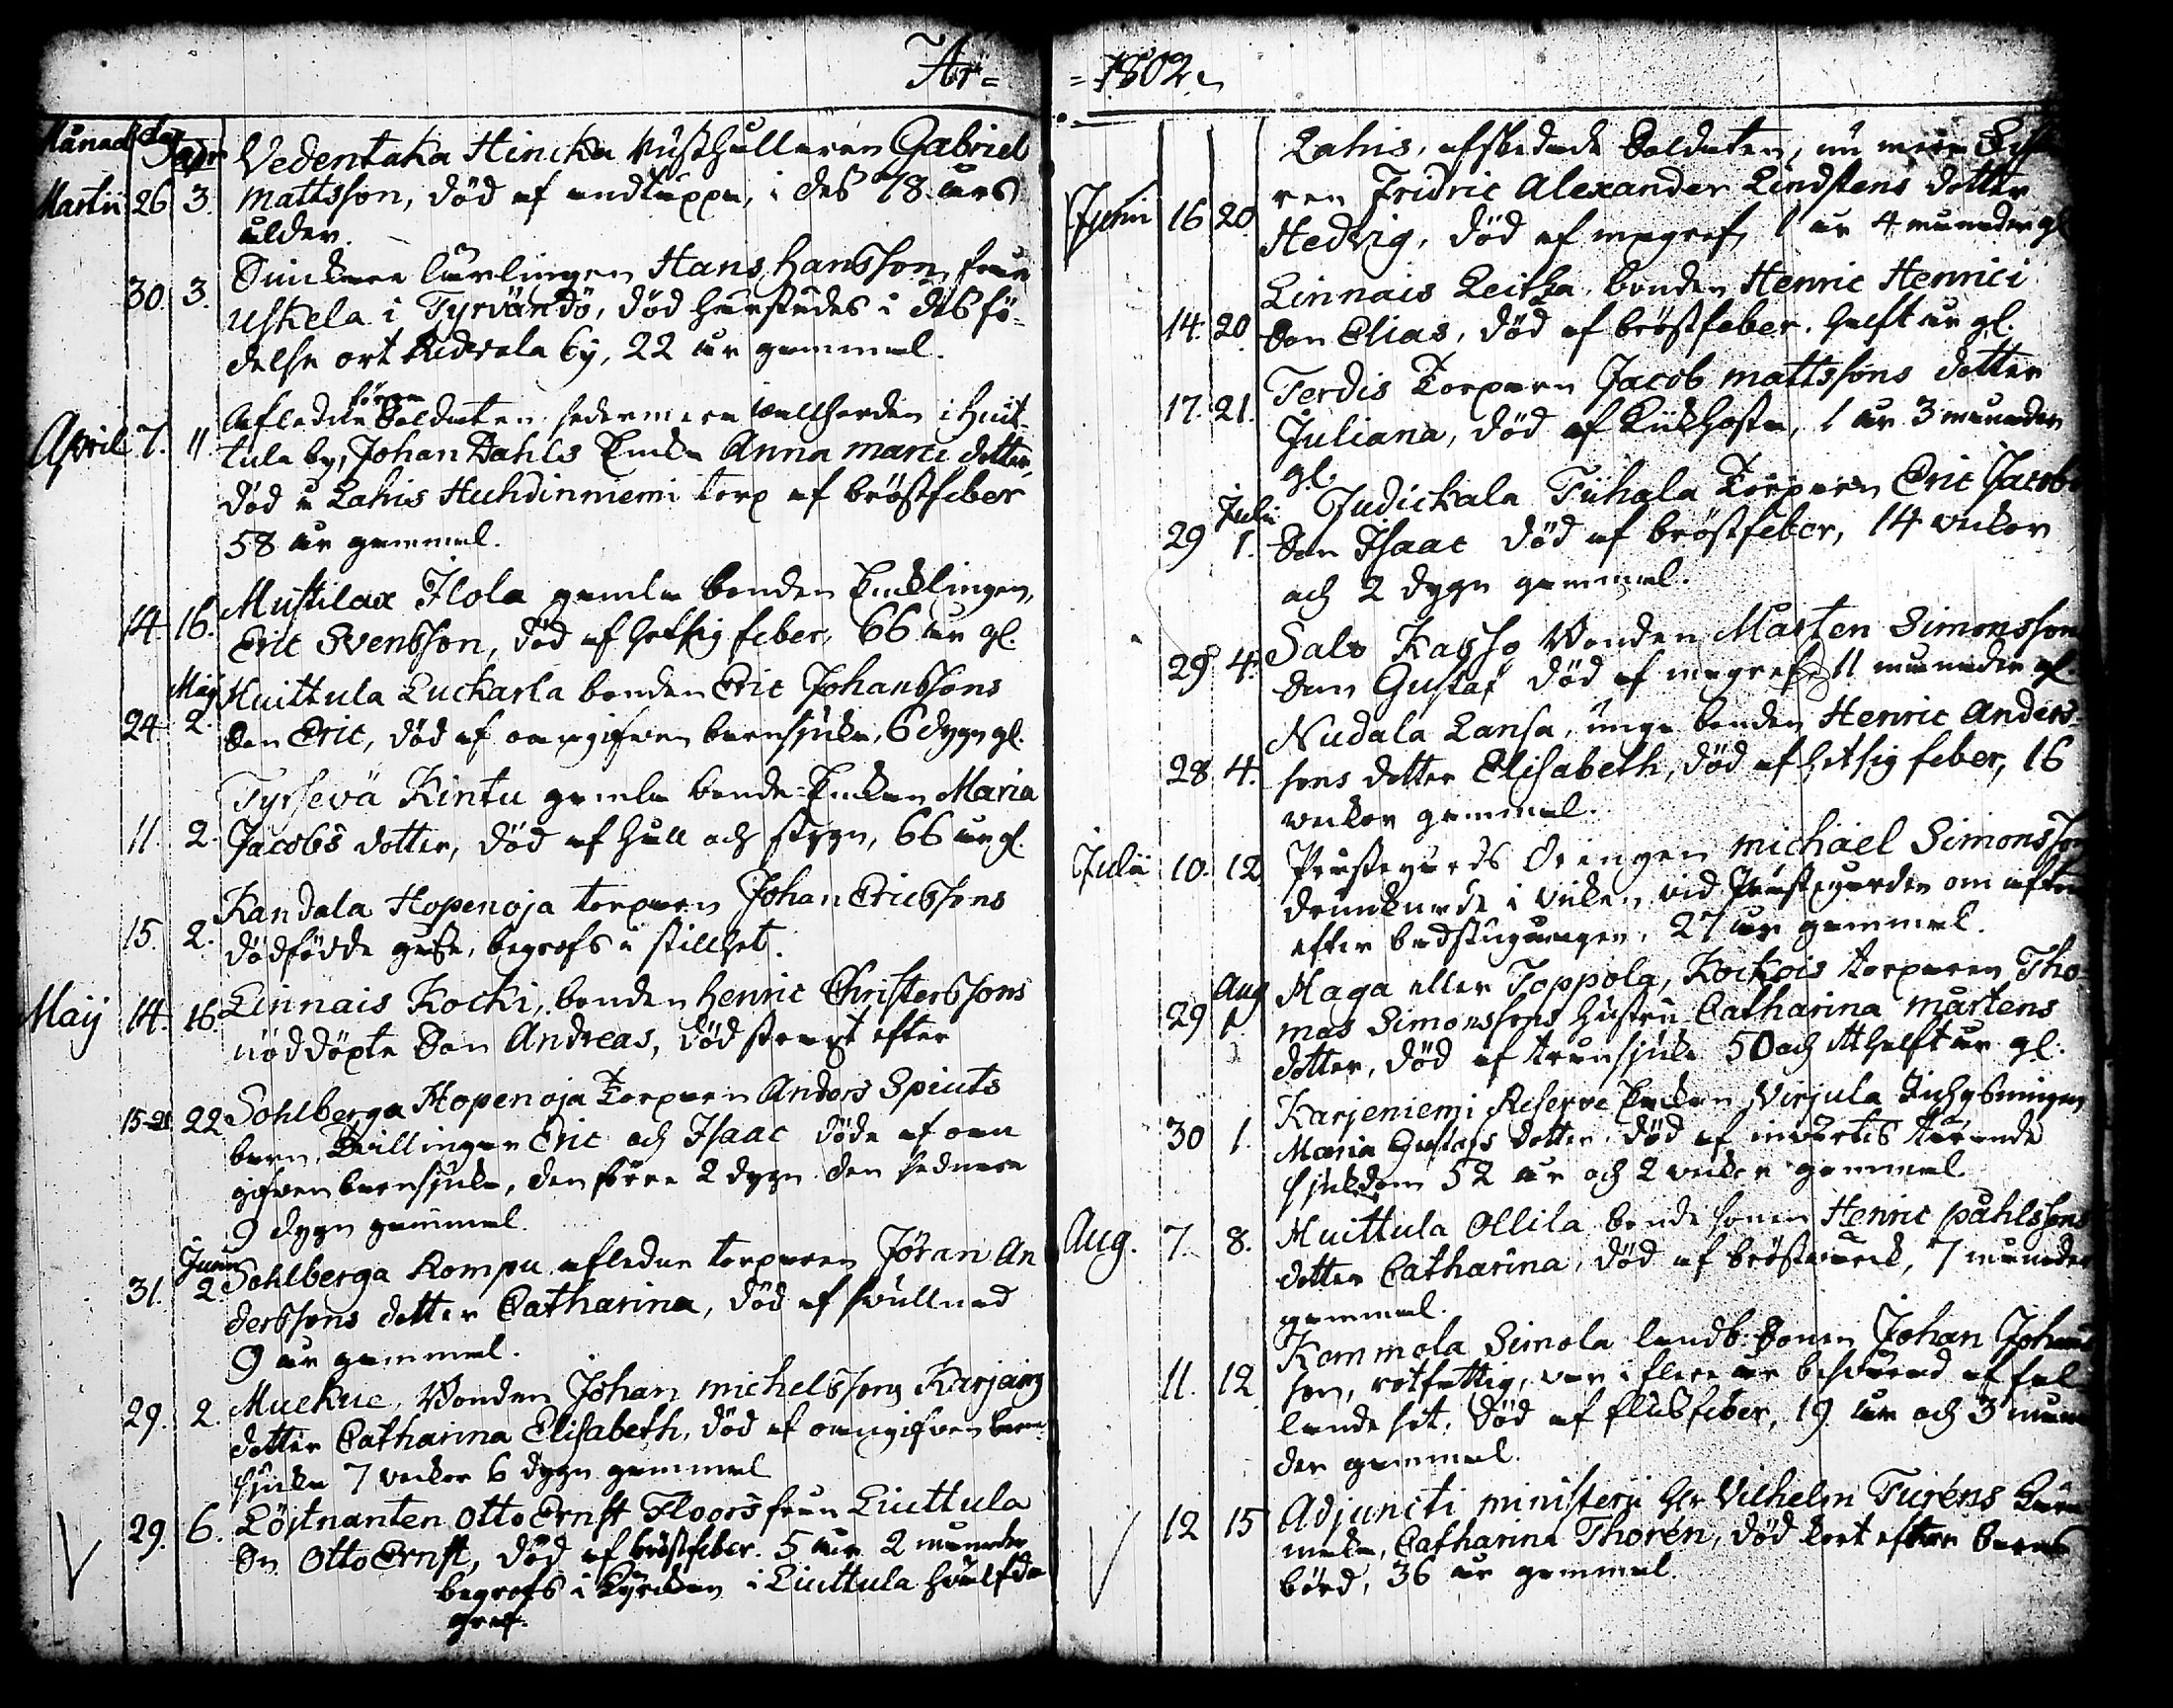 År =
= 1802.
Månad & dag
Vedentaka Hincka Rusthållaren Gabriel
Martii 26 3. Mattsson, död af andtäppa, i des 78. års
ålder.
30. 3. Hans Hansson från
Uskela i Tyrvändö, död härstädes i des fö-
delse ort Ridvala by, 22 år gammel.
Afledne förra Soldaten sedermera i Huit-
April 7. 11 tula by, Johan Dahls Enka Anna Marci dotter,
död i Lahis Huhdinniemi torp af bröstfeber
58 år gammel.
Mustilax Ilola gamla bonden Encklingen,
14. 16. Eric Svensson, död af hetsig feber, 66 år gl.
Maij Huittula Luckarla bonden Eric Johanssons
24 2. Son Eric, död af oangifven barnsjuka, 6 dygn gl.
Tyrsevä Kintu gamla bonde-Enkan Maria
11. 2. Jacobs dotter, död af håll och stygn, 66 år gl.
Kandala Hopenoja torparen Johan Ericssons
15. 2. dödfödde gåsse, begrofs i stillhet.
Linnais Kocki, bonden Henric Christerssons
Maij 14. 16. nöddöpte Son Andreas, död strax efter
Sohlberga Hopenoja Torparen Anders Spiuts
15-21 22 barn, Tvillingar Eric och Isaac döde af oan
gifven barnsjuka, den förre 2 dygn den sednare
9 dygn gammel.
Junii Sohlberga Rompu afledne torparen Jöran An
31. 2. derssons dotter Catharina, död af svullnad
9 år gammel.
29. 2. Muckue, Bonden Johan Michelssons Karjain
dotter Catharina Elisabeth, död af oangifven barn-
sjuka 7 veckor 6 dygn gammel
29. 6. Löjtnanten Otto Ernst Floors från Liuttula
Sn Otto Ernst, död af bröstfeber. 5 år 2 månader
begrofs i Kyrckan i Liuttula hvälfda
graf.
Lahis, afskedade Soldaten, nu mera
Junii 16 20. ren Fridric Alexander Lindstens dotter
Hedvig, död af magref, 1 år 4 månader gl
Linnais Leitha, bonden Henric Henrici
14. 20. Son Elias, död af bröstfeber. half år gl.
Terdis Torparen Jacob Mattssons dotter
17. 21. Juliana, död af Kikhosta, 1 år 3 månader
gl.
Julii Judickala Tuhala Torparen Eric Jacobs
29 1. Son Isaac död af bröstfeber, 14 veckor
och 2 dygn gammel.
Salo Kasso Bonden Mårten Simonsson
29 4. Son Gustaf död af magref, 11 månader gl.
Nudala Lansa, unga bonden Henric Anders-
28 4. sons dotter Elisabeth, död af hetsig feber, 16
veckor gammel.
Julii 10. 12. Prästegårds Drängen Michael Simonsson
drunknade i viken, vid Prästegården om afton
efter badstugången, 27 år gammel.
Aug Haga eller Toppola, Kockois torparen Tho-
29 1 mas Simonssons hustru Catharina Mårtens
dotter, död af tränsjuka 50 och Ett halft år gl.
Karjeniemi Reserve Enkan Virjula
30 1. Maria Gustafs dotter, död af invärtes tärande
sjukdom 52 år och 2 veckor gammel.
Aug. 7. 8. Huittula Ollila bondesonen Henric Påhlssons
dotter Catharina, död af bröstvärck, 7 månader
gammel.
Kommola Simola landb: Sonen Johan Johans
11. 12 son, rotfattig, var i flere år besvärad af fal-
lande sot. död af flussfeber, 19 år och 3 måna
der gammel.
12 15 Adjuncti Ministerii Hr Vilhelm Turéns
maka, Catharina Thorén, död kort efter barns
börd, 36 år gammel.